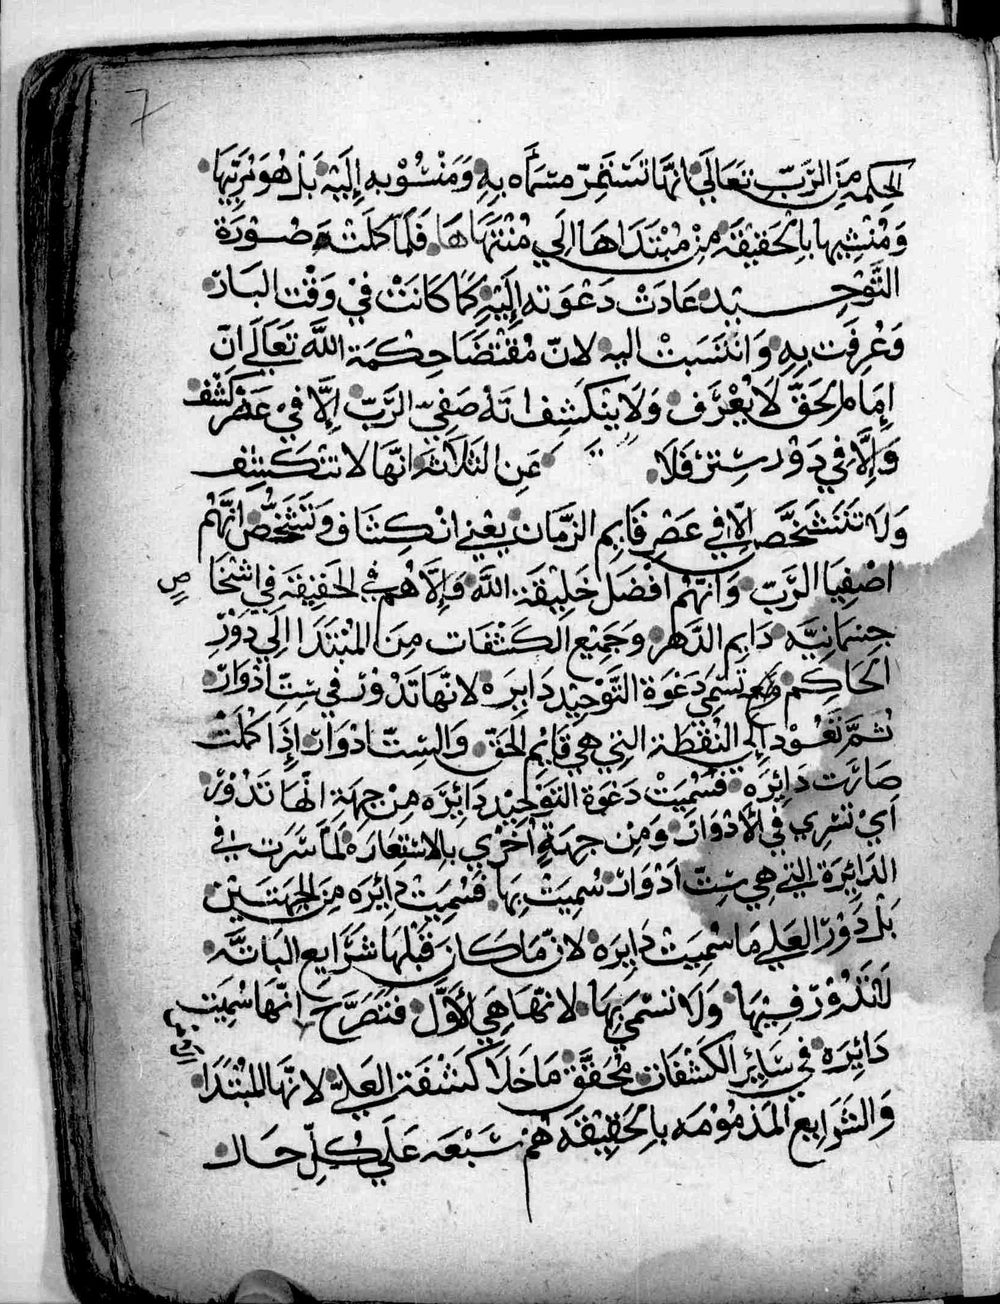 7
الحكمه من الرّبّ تعالَى انّها تستَمِرّ مسَمَّاه بِهِ وَمَنْسُوْبِه إِليَهْ بَلْ هُوَ مْرَبّيهَا
وَمُنْشِيها باِلْحَقيْقَه مِنْ مُبْتَدَاهَا إلَي مُنْتَهَاهَا فَلَمّا كمُلَتْ صُوْرَة
التَّوْحِيْد عَادَتْ دَعْوَته إِلَيْهِ كَمَا كَانَتْ فيْ وَقْت البَار
وَعُرِفَت بِهِ وَانْتَسَبَتْ اليه لانّ مُقْتَضَا حِكْمَة اللَّه تعَالَي انّ
إِمَام الحَقّ لَا يُعْرَف وَلَا ينْكَشِف انّهْ صَفيّ الرَّبّ إِلَّا فيْ عَصْر كَشْف
وَإِلَّا في دَوْر سِتر فَلا عَنِ الثَلاثه انّها لا تنْكَشِف
وَلَا تَتَشَخَّص إِلّا في عَصْر قَايم الزّمان يعْني انْكِشَاف وَتَشَخُّص انَّهُم
اصْفِيَا الرَّبّ وَانَّهُم افْضَل خَلِيْقَة اللَّه وَإِلَّا هُم في الحَقِيقَة في اشْخَاص
جِسْمَانِيَّه دَايم الدَّهر وَجَمِيْع الكَشْفَات مِنَ المُبْتَدَا إلَي دَوْر
الحَاكِم تسَمَّي دَعْوَة التَّوْحِيْد دَايِرَه لانّهَا تَدُوْر في سِتّ ادْوَار
ثُمَّ تَعُوْد إلَي النّقْطَة التي هي قَايم الحَقّ وَالسِتّ ادْوَار إِذَا كمُلَتْ
صَارَت دَايِرَه فَسُمِيَتْ دَعْوَة التَوْحِيْد دَايِرَه مِنْ جِهَة انّهَا تَدُوْر
أَيْ تسْرِي في الأدْوَار وَمِن جِهَةٍ أخْرَي بالاسْتِعَارَه لَمّا سَرَت في
الدَايِرَة التي هي سِتّ ادْوَار سُمِيَتْ بِهَا فَسُمِيَتْ دَايرَه مِنَ الجِهَتَيْن
بَلْ دَوْر العَلي مَا سُمِيَتْ دَايِرَه لانّ مَا كان قَبْلهَا شَرَايع البَاتّه
لتَدُوْر فيْهَا وَلا تسْمّي بِهَا لانّهَا هِيَ الأوَّل فتَصَرَّح انّهَا سُمِيَت
دَايِرَه في سَاير الكَشْفَات مْحَقَّق مَا خَلَا كَشْفَة العَليّ لانّهَا المُبْتَدَا
وَالشَرَايع المَذمُوْمَه باِلْحَقِيْقَه هُمْ سَبْعَه عَلَي كُلّ حَال